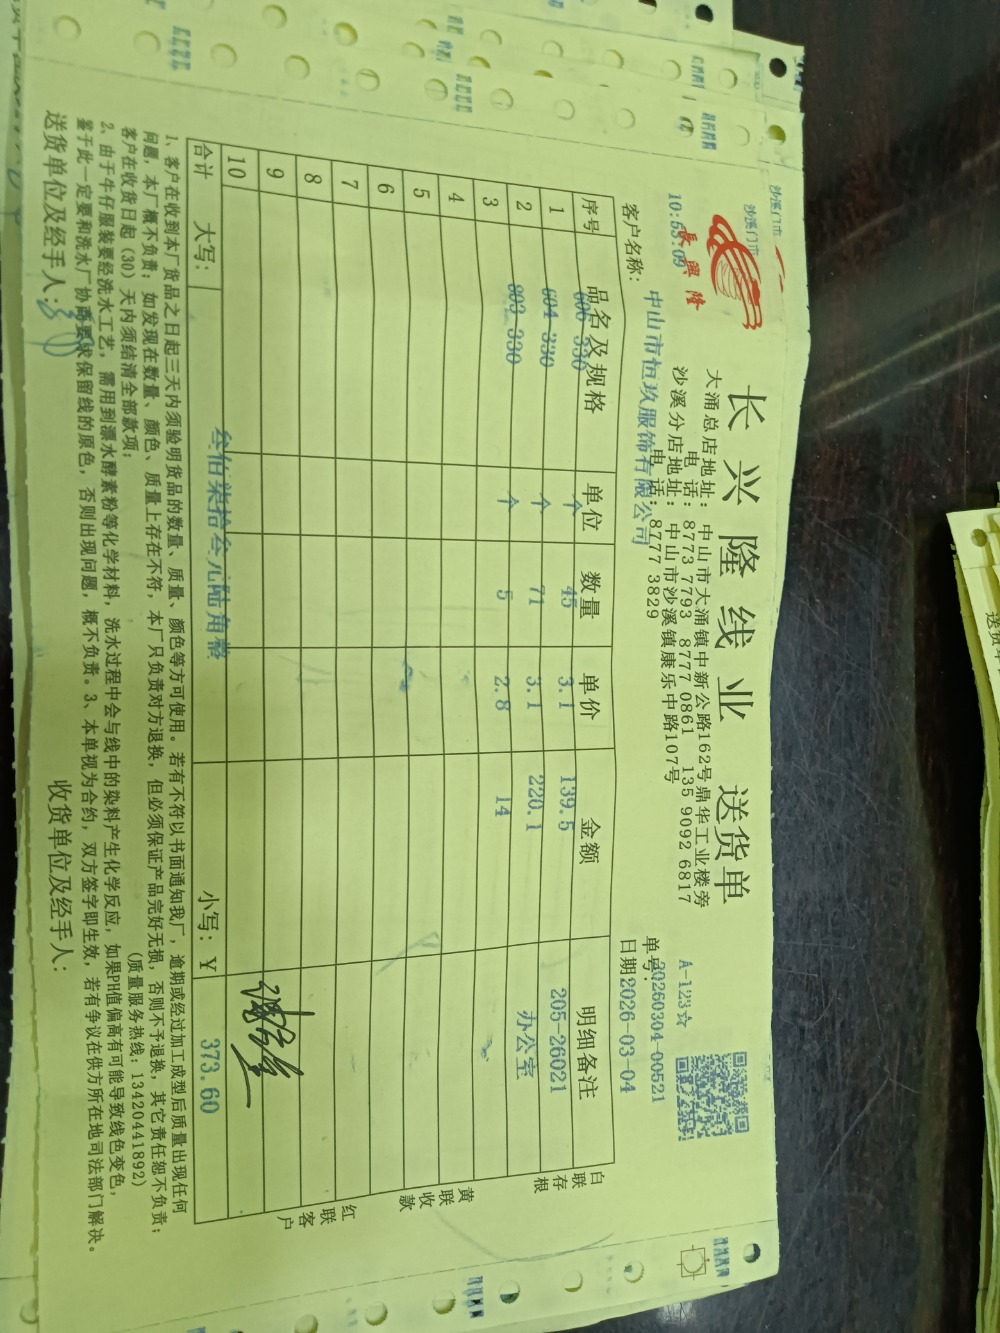 沙溪门市
沙溪门市
10:53:09
長興隆
长兴隆线业 送货单
A-123☆
大涌总店地址: 中山市大涌镇中新公路162号鼎华工业楼旁
电 话: 8773 7793 8777 0861 135 9092 6817
沙溪分店地址: 中山市沙溪镇康乐中路107号
电 话: 8777 3829
单号: 20260304-00521
客户名称: 中山市恒玖服饰有限公司
日期2026-03-04
序号 品名及规格 单位 数量 单价 金额 明细备注
1 606 330 个 45 3.1 139.5 205-26021
2 604 330 个 71 3.1 220.1 办公室
3 803 330 个 5 2.8 14
4
5
6
7
8
9
10
合计 大写: 叁佰柒拾叁元陆角整 小写: ¥ 373.60
白联存根
黄联收款
红联客户
1、客户在收到本厂货品之日起三天内须验明货品的数量、质量、颜色等方可使用。若有不符以书面通知我厂,逾期或经过加工成型后质量出现任何
问题,本厂概不负责;如发现在数量、颜色、质量上存在不符,本厂只负责对方退换,但必须保证产品完好无损,否则不予退换,其它责任恕不负责;
客户在收货日起(30)天内须结清全部款项; (质量服务热线: 13420441892)
2、由于牛仔服装要经洗水工艺,需用到漂水酵素粉等化学材料,洗水过程中会与线中的染料产生化学反应,如果PH值偏高有可能导致线色变色,
鉴于此一定要和洗水厂协商要求保留线的原色,否则出现问题,概不负责。3、本单视为合约,双方签字即生效,若有争议在供方所在地司法部门解决。
送货单位及经手人: 收货单位及经手人: